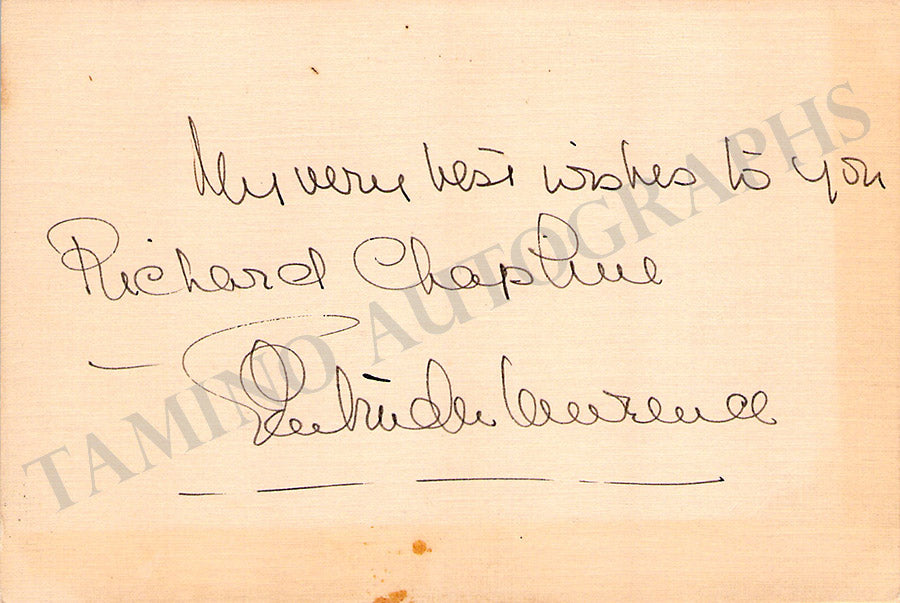 My very best wishes to you
Richard Chapline
— Gertrude Lawrence
TAMINO AUTOGRAPHS